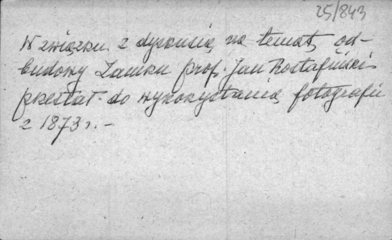 25/843
W związku z dyskusją na temat od-
budowy Zamku prof. Jan Rostafiński
przesłał do wykorzystania fotografie
z 1873 r. -